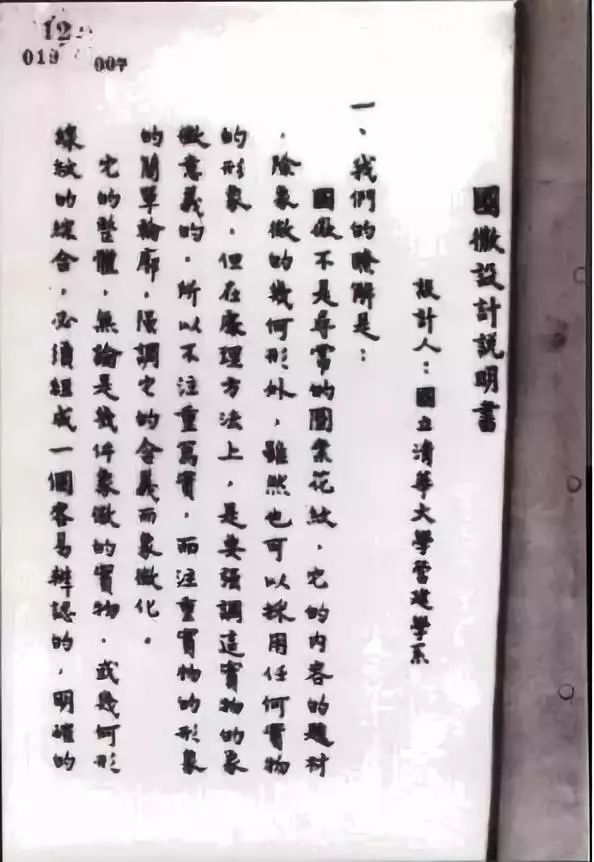 12
019
007
國徽設計説明書
設計人：國立清華大學營建學系
一、我們的瞭解是：
國徽不是尋常的圖案花紋，它的内容的題材
，除象徵的幾何形外，雖然也可以採用任何實物
的形象，但在處理方法上，是要强調這實物的象
徵意義的，所以不注重寫實，而注重實物的形象
的簡單輪廓，强調它的含義而象徵化。
它的整體，無論是幾件象徵的實物，或幾何形
線紋的綜合，必須組成一個容易辨認的，明確的